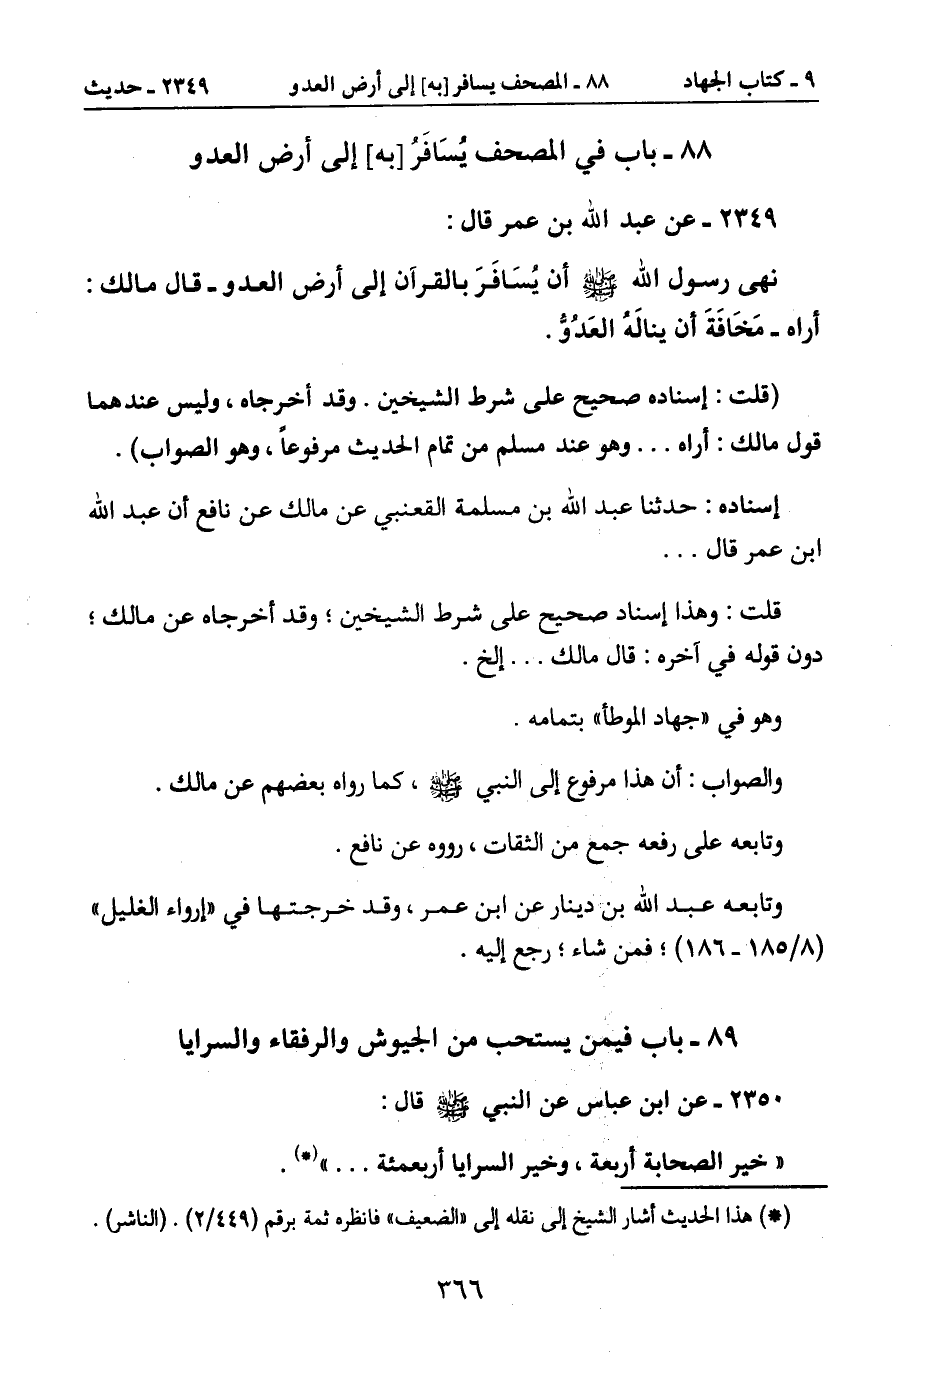 ٩ ـ كتاب الجهاد ٨٨ ـ المصحف يسافر [به] إلى أرض العدو ٢٣٤٩ ـ حديث
٨٨ ـ باب في المصحف يُسَافَرُ [به] إلى أرض العدو
٢٣٤٩ ـ عن عبد الله بن عمر قال :
نهى رسول الله ﷺ أن يُسَافَرَ بالقرآن إلى أرض العدو ـ قال مالك :
أراه ـ مَخَافَةَ أن ينالَهُ العَدُوُّ .
(قلت : إسناده صحيح على شرط الشيخين . وقد أخرجاه ، وليس عندهما
قول مالك : أراه . . . وهو عند مسلم من تمام الحديث مرفوعاً ، وهو الصواب) .
إسناده : حدثنا عبد الله بن مسلمة القعنبي عن مالك عن نافع أن عبد الله
ابن عمر قال . . .
قلت : وهذا إسناد صحيح على شرط الشيخين ؛ وقد أخرجاه عن مالك ؛
دون قوله في آخره : قال مالك . . . إلخ .
وهو في «جهاد الموطأ» بتمامه .
والصواب : أن هذا مرفوع إلى النبي ﷺ ، كما رواه بعضهم عن مالك .
وتابعه على رفعه جمع من الثقات ، رووه عن نافع .
وتابعه عبد الله بن دينار عن ابن عمر ، وقد خرجتها في «إرواء الغليل»
(٨/١٨٥ ـ ١٨٦) ؛ فمن شاء ؛ رجع إليه .
٨٩ ـ باب فيمن يستحب من الجيوش والرفقاء والسرايا
٢٣٥٠ ـ عن ابن عباس عن النبي ﷺ قال :
« خير الصحابة أربعة ، وخير السرايا أربعمئة . . . »(*) .
(*) هذا الحديث أشار الشيخ إلى نقله إلى «الضعيف» فانظره ثمة برقم (٢/٤٤٩) . (الناشر) .
٣٦٦